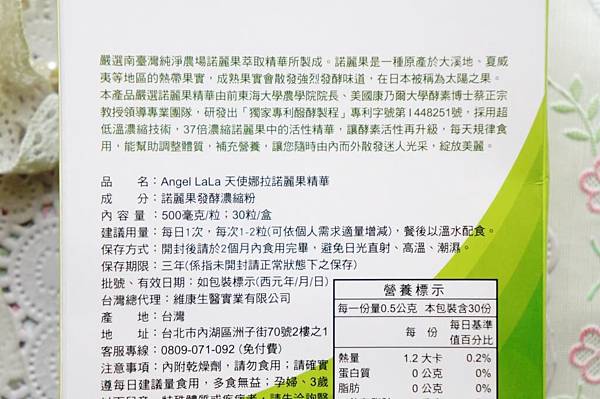 嚴選南臺灣純淨農場諾麗果萃取精華所製成。諾麗果是一種原產於大溪地、夏威
夷等地區的熱帶果實，成熟果實會散發強烈發酵味道，在日本被稱為太陽之果。
本產品嚴選諾麗果精華由前東海大學農學院院長、美國康乃爾大學酵素博士蔡正宗
教授領導專業團隊，研發出「獨家專利醱酵製程」專利字號第I 448251號，採用超
低溫濃縮技術，37倍濃縮諾麗果中的活性精華，讓酵素活性再升級，每天規律食
用，能幫助調整體質，補充營養，讓您隨時由內而外散發迷人光采，綻放美麗。
品　　名：Angel LaLa 天使娜拉諾麗果精華
成　　分：諾麗果發酵濃縮粉
內 容 量 ：500毫克/粒；30粒/盒
建議用量：每日1次，每次1-2粒(可依個人需求適量增減)，餐後以溫水配食。
保存方式：開封後請於2個月內食用完畢，避免日光直射、高溫、潮濕。
保存期限：三年(係指未開封請正常狀態下之保存)
批號、有效日期：如包裝標示(西元年/月/日)
台灣總代理：維康生醫實業有限公司
產　　地：台灣
地　　址：台北市內湖區洲子街70號2樓之1
客服專線：0809-071-092 (免付費)
注意事項：內附乾燥劑，請勿食用；請確實
遵每日建議量食用，多食無益；孕婦、3歲
營養標示
每一份量0.5公克 本包裝含30份
每　份　每日基準值百分比
熱量　1.2 大卡　0.2%
蛋白質　0 公克　0%
脂肪　0 公克　0%